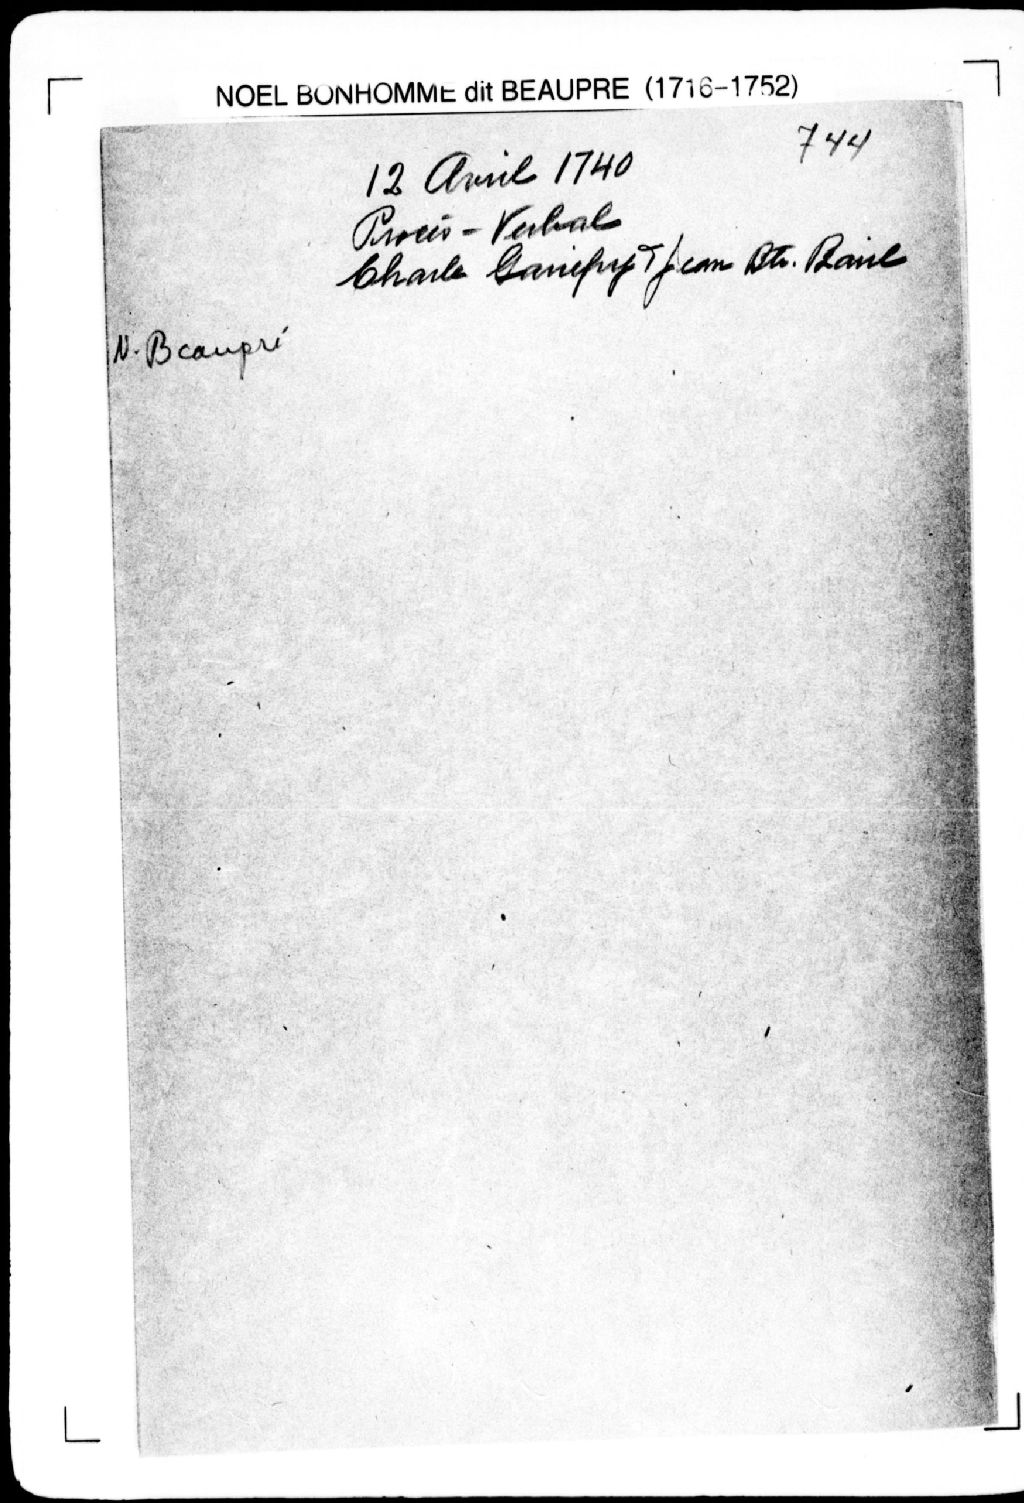 NOEL BONHOMME dit BEAUPRE (1716-1752)
744
12 Avril 1740
Procès-Verbal
Charle Gariépy & Jean Bte.
N. Beaupré